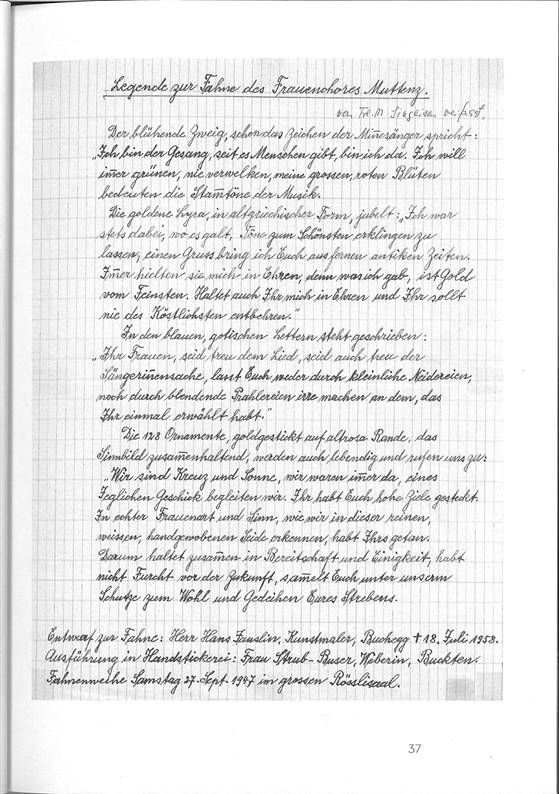 Legende zur Fahne des Frauenchores Muttenz.
von Frl. M. Singeisen verfasst.
Der blühende Zweig, schon das Zeichen der Min̅esänger spricht:
„Ich bin der Gesang, seit es Menschen gibt, bin ich da. Ich will
im̅er grünen, nie verwelken, meine grossen, roten Blüten
bedeuten die Stam̅töne der Musik.
Die goldene Lyra, in altgriechischer Form, jubelt: „Ich war
stets dabei, wo es galt, Töne zum Schönsten erklingen zu
lassen, einen Gruss bring ich Euch aus fernen antiken Zeiten.
Im̅er hielten sie mich in Ehren, denn was ich gab, ist Gold
vom Feinsten. Haltet auch Ihr mich in Ehren und Ihr sollt
nie des Köstlichsten entbehren."
In den blauen, gotischen Lettern steht geschrieben:
„Ihr Frauen, seid treu dem Lied, seid auch treu der
Sängerin̅ensache, lasst Euch weder durch kleinliche Neidereien,
noch durch blendende Prahlereien irre machen an dem, das
Ihr einmal erwählt habt."
Die 128 Ornamente, goldgestickt auf altrosa Rande, das
Sinnbild zusam̅enhaltend, werden auch lebendig und rufen uns zu:
„Wir sind Kreuz und Sonne, wir waren im̅er da, eines
Jeglichen Geschick begleiten wir. Ihr habt Euch hohe Ziele gesteckt.
In echter Frauenart und Sinn, wie wir in dieser reinen,
weissen, handgewobenen Seide erkennen, habt Ihrs getan.
Darum haltet zusam̅en in Bereitschaft und Einigkeit, habt
nicht Furcht vor der Zukunft, sam̅elt Euch unter unserm
Schutze zum Wohl und Gedeihen Eures Strebens.
Entwurf zur Fahne: Herr Hans Kunstmaler, Buchegg † 18. Juli 1958.
Ausführung in Handstickerei: Frau Strub-Buser, Weberin, Buckten.
Fahnenweihe Samstag 27. Sept. 1947 im grossen Rösslisaal.
37